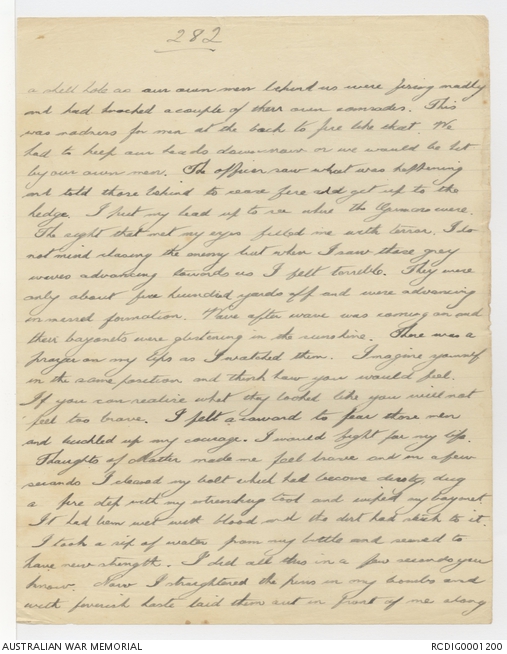 282
a shell hole as our own men behind us were firing madly
and had knocked a couple of their own comrades. This
was madness for men at the back to fire like that. We
had to keep our heads down now or we would be hit
by our own men. The officer saw what was happening
and told those behind to cease fire and get up to the
hedge. I put my head up to see where the Germans were.
The sight that met my eyes filled me with terror. I do
not mind chasing the enemy but when I saw those grey
waves advancing towards us I felt terrible. They were
only about five hundred yards off and were advancing
in massed formation. Wave after wave was coming on and
their bayonets were glistening in the sunshine. There was a
prayer on my lips as I watched them. Imagine yourself
in the same position and think how you would feel.
If you can realize what they looked like you will not
feel too brave. I felt a coward to fear those men
and buckled up my courage. I would fight for my life.
Thoughts of Mater made me feel brave and in a few
seconds I cleaned my bolt which had become dirty, dug
a fire step with my entrenching tool and wiped my bayonet
It had been wet with blood and the dirt had stuck to it.
I took a sip of water from my bottle and seemed to
have new strength. I did all this in a few seconds you
know. Now I straightened the pins in my bombs and
with feverish haste laid them out in front of me along
AUSTRALIAN WAR MEMORIAL
RCDIG0001200